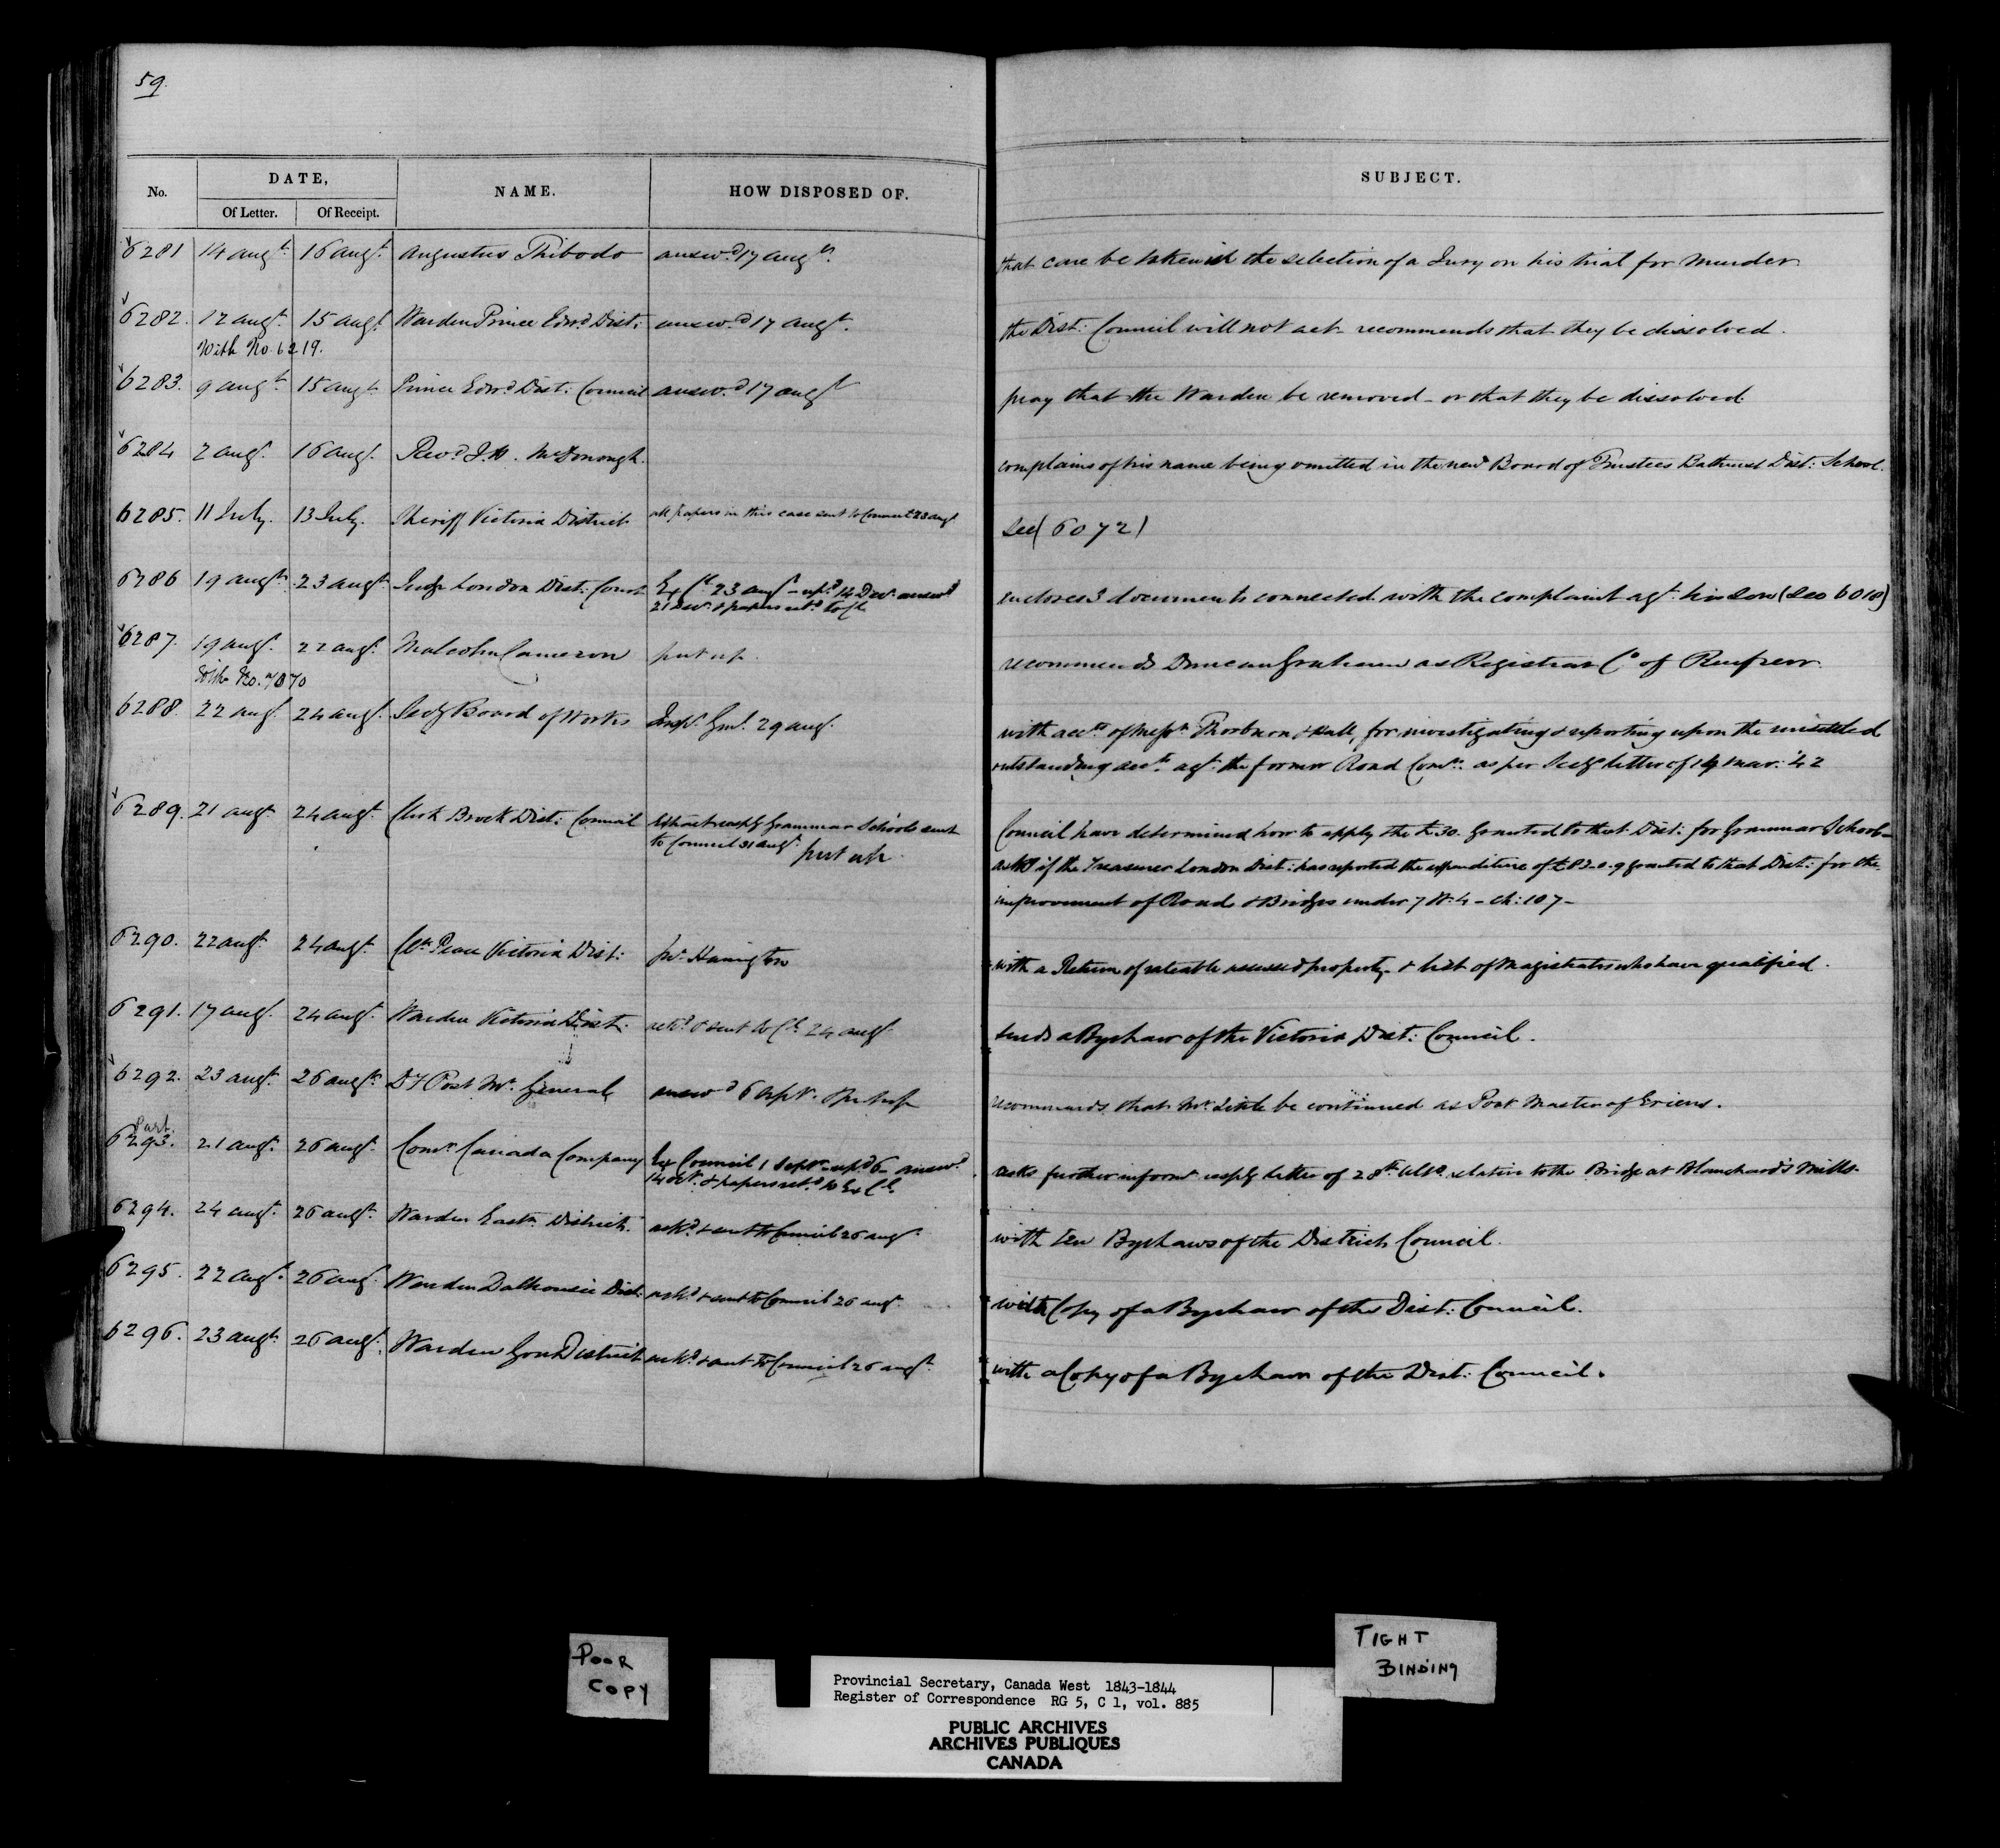 59.
No. DATE, NAME. HOW DISPOSED OF. SUBJECT.
Of Letter. Of Receipt.
6281 14 augt 16 augt Augustus Thibodo answd 17 augt. that care be taken in the selection of a Jury on his trial for Murder
6282. 12 augt. 15 augt Warden Prince Edwd Dist: answd 17 augt. the Dist: Council will not act recommends that they be dissolved.
With No. 6219.
6283. 9 augt 15 augt Prince Edwd Dist: Council answd 17 augt pray that the Warden be removed - or that they be dissolved
6284 2 augt. 16 augt. Revd J.H. McDonough. complains of his name being omitted in the new Board of Trustees Bathurst Dist: School.
6285. 11 July. 13 July. Sheriff Victoria District all papers in this case sent to Council 23 augt See (6072)
6286 19 augt 23 augt Judge London Dist: Court Ex Cl 23 augt - repd 14 Decr answd enclores 3 documents connected with the complaint agt. his Son (See 6018)
21 Decr. & papers retd to Cl
6287. 19 augt. 22 augt. Malcolm Cameron put up. recommends Duncan Graham as Registrar Co of Renfrew.
With No. 7070
6288. 22 augt. 24 augt. Secy Board of Works Inspr Genl. 29 augt. with accts of Messrs Thorburn & Hall, for investigating & reporting upon the unsettled
outstanding accts. agt. the former Road Comrs. as per Secys letter of 19 Mar: '42
6289. 21 augt 24 augt. Clerk Brock Dist: Council Extract resptg Grammar Schools sent Council have determined how to apply the £30. Granted to that Dist: for Grammar Schools -
to Council 31 augt. put up. asks if the Treasurer London Dist: has reported the expenditure of £83-0-9 granted to that Dist: for the
improvement of Roads & Bridges under 7 W: 4 - Ch: 107 -
6290. 22 augt 24 augt. Clk Peace Victoria Dist: pr. Harrington with a Return of rateable assessed property & list of Magistrates who have qualified.
6291. 17 augt. 24 augt. Warden Victoria Dist: ackd & sent to Cl 24 augt sends a Bye Law of the Victoria Dist: Council.
6292. 23 augt. 26 augt. Dy Post Mr. General answd 6 Sept. & put up recommends that Mr. Little be continued as Post Master of Erieus.
Part.
6293. 21 augt. 26 augt. Comrs Canada Company Ex Council 1 Sept. repd 6 - answd. asks further informn resptg letter of 28th Ulto relative to the Bridge at Blanchard's Mills.
14 Oct. & papers retd to Ex Cl.
6294. 24 augt. 26 augt. Warden Eastn District. ackd. & sent to Council 26 augt. with ten Bye Laws of the District Council.
6295. 22 augt. 26 augt. Warden Dalhousie Dist: ackd. & sent to Council 26 augt. with Copy of a Bye Law of the Dist: Council.
6296. 23 augt. 26 augt. Warden Gore District ackd. & sent to Council 26 augt. with a Copy of a Bye Law of the Dist: Council.
POOR
COPY
TIGHT
BINDING
Provincial Secretary, Canada West 1843-1844
Register of Correspondence RG 5, C 1, vol. 885
PUBLIC ARCHIVES
ARCHIVES PUBLIQUES
CANADA